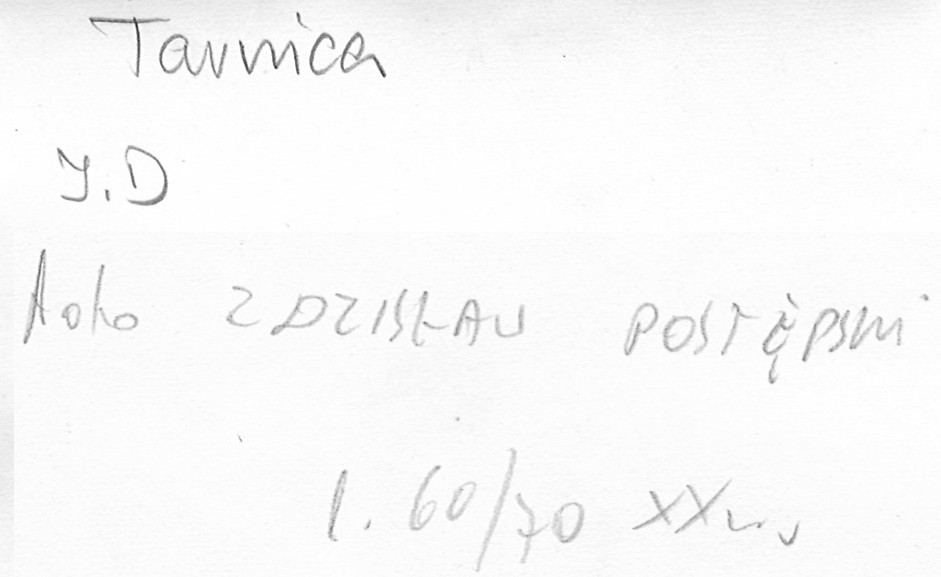 Tarnica
J.D
foto ZDZISŁAW POSTĘPSKI
l. 60/70 XX w.